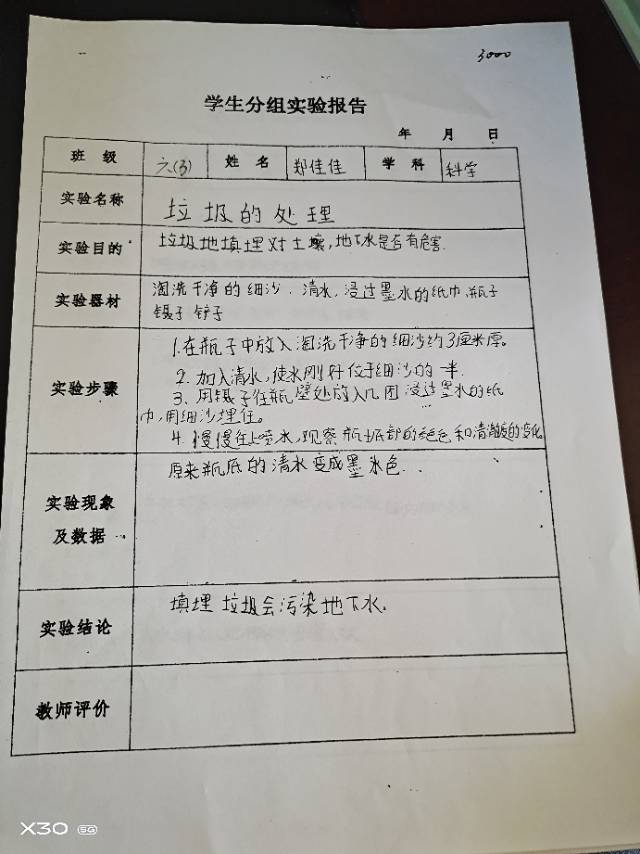 3000
学生分组实验报告
年 月 日
班 级 六(3) 姓 名 郑佳佳 学 科 科学
实验名称 垃圾的处理
实验目的 垃圾地填埋对土壤,地下水是否有危害.
实验器材 淘洗干净的细沙.清水.浸过墨水的纸巾.瓶子
镊子 铲子
实验步骤 1.在瓶子中放入淘洗干净的细沙约3厘米厚。
2.加入清水,使水刚好位于细沙的一半.
3、用镊子往瓶壁处放入几团浸过墨水的纸
巾,用细沙埋住。
4.慢慢往上喷水,观察瓶底部的颜色和清澈度的变化
实验现象
及数据 原来瓶底的清水变成墨水色..
实验结论 填埋垃圾会污染地下水.
教师评价
X30 5G